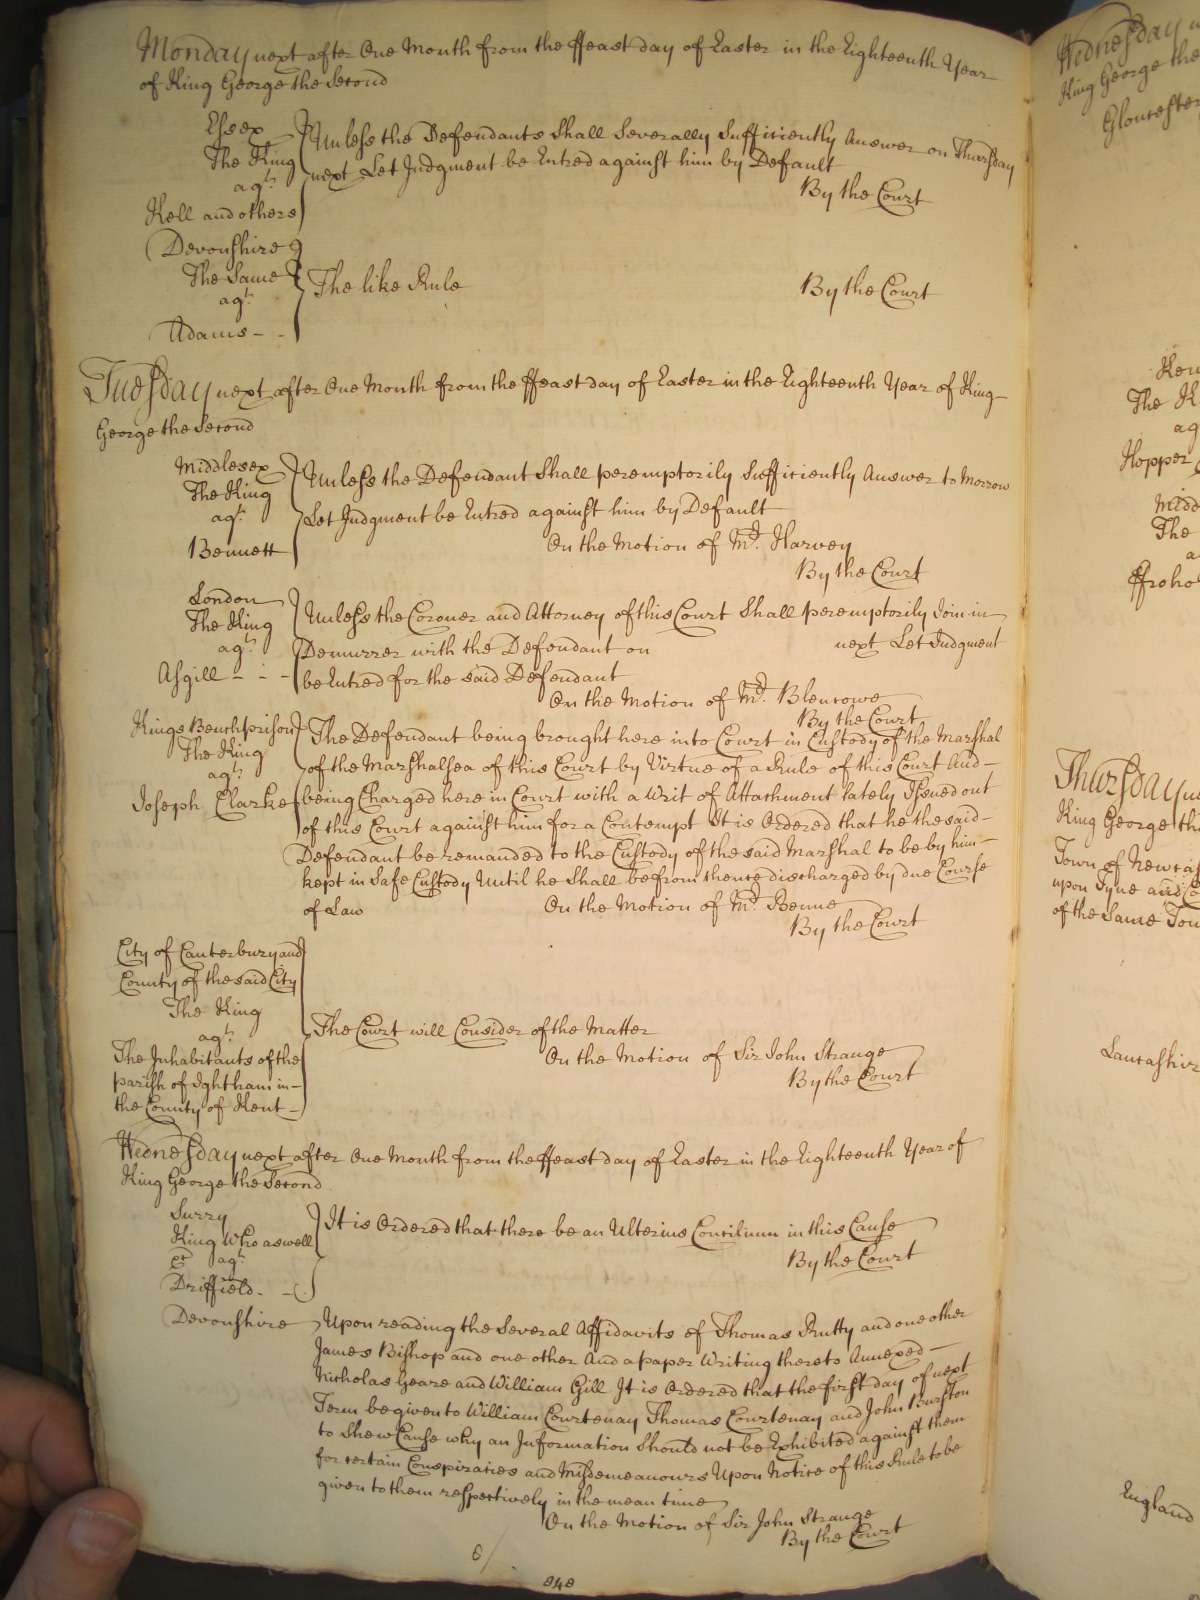 Monday next after One Month from the ffeast day of Easter in the Eighteenth Year
of King George the Second
Essex
The King
agt.
Kell and others
Unless the Defendants Shall Severally Sufficiently Answer on Thursday
next Let Judgment be Entred against him by Default
By the Court
Devonshire
The Same
agt.
Adams
The like Rule
By the Court
Tuesday next after One Month from the ffeast day of Easter in the Eighteenth Year of King
George the Second
Middlesex
The King
agt.
Bennett
Unless the Defendant Shall peremptorily Sufficiently Answer to Morrow
Let Judgment be Entred against him by Default
On the Motion of Mr. Harvey
By the Court
London
The King
agt.
Asgill
Unless the Coroner and Attorney of this Court Shall peremptorily Join in
Demurrer with the Defendant on next Let Judgment
be Entred for the said Defendant
On the Motion of Mr. Blencowe
By the Court
Kings Bench prison
The King
agt.
Joseph Clarke
The Defendant being brought here into Court in Custody of the Marshal
of the Marshalsea of this Court by Virtue of a Rule of this Court And
being Charged here in Court with a Writ of Attachment lately Issued out
of this Court against him for a Contempt It is Ordered that he the said
Defendant be remanded to the Custody of the said Marshal to be by him
kept in Safe Custody Until he Shall be from thence discharged by due Course
of Law
On the Motion of Mr. Benne
By the Court
City of Canterbury and
County of the said City
The King
agt.
The Inhabitants of the
parish of Ightham in
the County of Kent
The Court will Consider of the Matter
On the Motion of Sir John Strange
By the Court
Wednesday next after One Month from the ffeast day of Easter in the Eighteenth Year of
King George the Second
Surry
King who aswell
&c agt.
Driffield
It is Ordered that there be an Ulterius Concilium in this Cause
By the Court
Devonshire
Upon reading the Several Affidavits of Thomas Rutty and one other
James Bishop and one other And a paper Writing thereto Annexed
Nicholas Geare and William Gill It is Ordered that the first day of next
Term be given to William Courtenay Thomas Courtenay and John Burston
to Shew Cause why an Information Should not be Exhibited against them
for certain Conspiracies and Misdemeanours Upon Notice of this Rule to be
given to them respectively in the mean time
On the Motion of Sir John Strange
By the Court
6/
Wednesday
King George the
Gloucester
The K
ag
Hopper
Midd
The
a
ffroho
Thursday
King George th
Town of Newcas
upon Tyne and Co
of the Same Tow
Lancashir
England